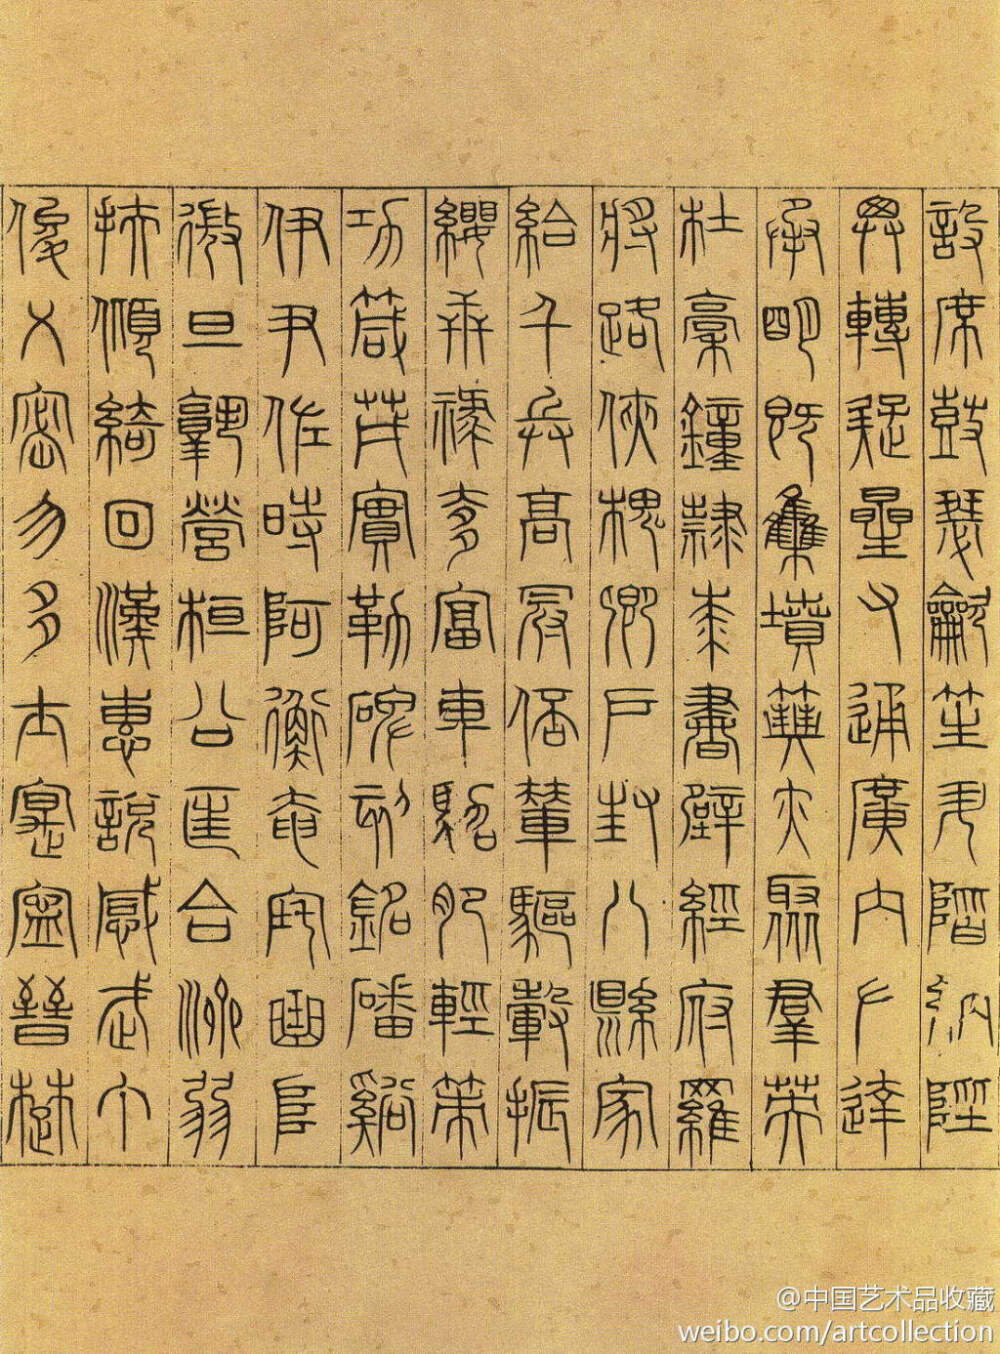 設席鼓瑟龡笙升階納陛
弁轉疑星右通廣內左達
承明既集墳典亦聚羣英
杜稾鐘隸漆書壁經府羅
將路俠槐卿戶封八縣家
給千兵高冠陪輦驅轂振
纓世祿侈富車駕肥輕策
功箴茂實勒碑刻銘磻谿
伊尹佐時阿衡奄宅曲阜
微旦孰營桓公匡合濟弱
扶傾綺回漢惠說感武丁
俊乂密勿多士寔寧晉楚
@中国艺术品收藏
weibo.com/artcollection